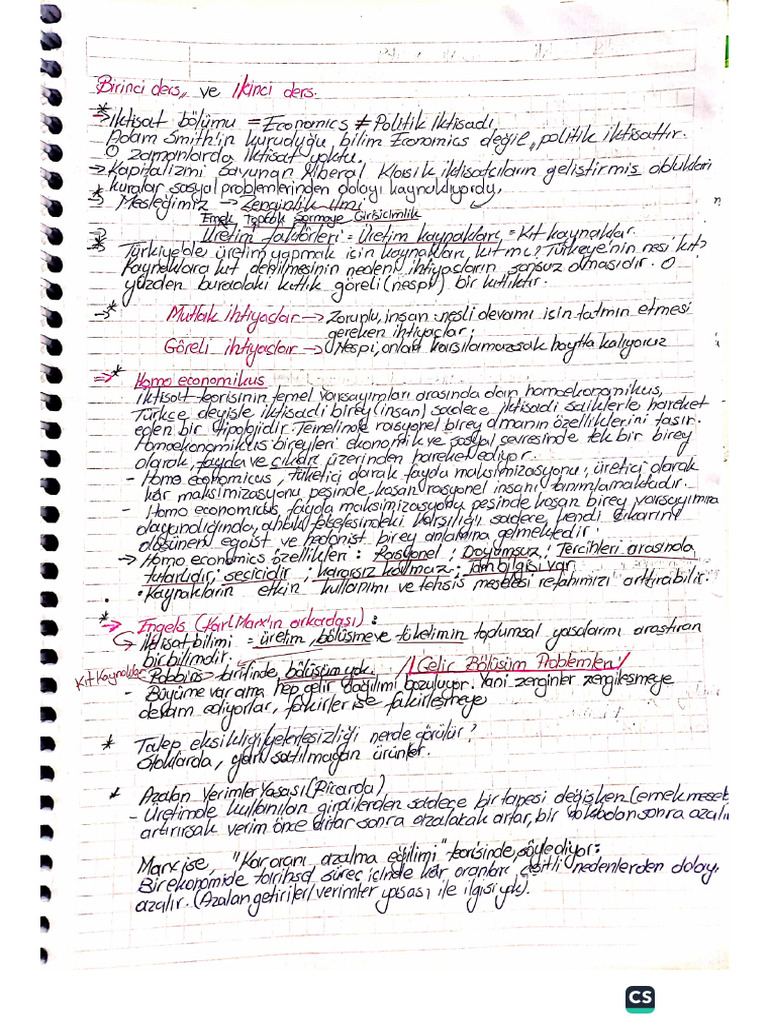 Birinci ders,, ve İkinci ders.
* → İktisat bölümü = Economics ≠ Politik İktisadı
Adam Smith'in kuruduğu bilim Economics değil,, politik iktisattır.
O zamanlarda iktisat yoktu.
→ Kapitalizmi savunan liberal Klasik iktisatçıların geliştirmiş oldukları
kuralar sosyal problemlerinden dolayı kaynaklıyordu.
* → Mesleğimiz → Zenginlik ilmi
Emek Toprak Sermaye Girişicimlik
* → Üretim faktörleri = Üretim kaynakları = Kıt kaynaklar.
* Türkiye'de üretim yapmak için kaynakları kıt mı? Türkiye'nin nesi kıt?
Kaynaklara kıt denilmesinin nedeni ihtiyaçların sonsuz olmasıdır. O
yüzden buradaki kıtlık göreli (nespi) bir kıtlıktır.
→ * Mutlak ihtiyaçlar → Zorunlu, insan nesli devamı için tatmın etmesi
gereken ihtiyaçlar.
Göreli ihtiyaçlar → Nespi, onları karşılamazsak haytta kalıyoruz
⇒ * Homo economikus
İktisat teorisinin temel varsayımları arasında olan homoekonomikus,
Türkçe deyişle iktisadi birey (insan) sadece iktisadi saiklerle hareket
eden bir tipolojidir. Temelinde rasyonel birey olmanın özelliklerini taşır.
Homoekonomikus bireyleri ekonomik ve sosyal çevresinde tek bir birey
olarak, fayda ve çıkar üzerinden hareket ediyor.
- Homo economicus, tüketici olarak fayda maksimizasyonu, üretici olarak
kâr maksimizasyonu peşinde koşan rasyonel insanı tanımlamaktadır.
- Homo economicus, fayda maksimizasyonu peşinde koşan birey varsayımına
dayandığında, ahlak felsefesindeki karşılığı sadece kendi çıkarını
düşünen egoist ve hedonist birey anlamına gelmektedir.
→ Homo economics özellikleri : Rasyonel ; Doyumsuz ; Tercihleri arasında
tutarlıdır; seçicidir ; kararsız kalmaz ; tam bilgisi var.
• Kaynakların etkin kullanımı ve tehsis meselesi refahımızı arttırabilir.
* → Ingels (Karl Marx'ın arkadaşı) :
İktisat bilimi = üretim, bölüşme ve tüketimin toplumsal yasalarını araştıran
bir bilimdir.
Kıt Kaynaklar Robbins → tarifinde, bölüşüm yok. / Gelir Bölüşüm Problemleri /
- Büyüme var ama hep gelir dağılımı bozuluyor. Yani zenginler zengileşmeye
devam ediyorlar, fakirler ise fakirleşmeye
* Talep eksikliği/yetersizliği nerde görülür?
Stoklarda, yani satılmayan ürünler.
* Azalan Verimler Yasası (Ricardo)
- Üretimde kullanılan girdilerden sadece bir tanesi değişken (emek mesela)
artırırsak verim önce artar sonra azalacak artar, bir noktadan sonra azalır
Marx ise, "Kar oranı azalma eğilimi" teorisinde, söylediyor:
Bir ekonomide tarihsel süreç içinde kâr oranları çeşitli nedenlerden dolayı
azalır. (Azalan getiriler/verimler yasası ile ilgisi yok).
CS